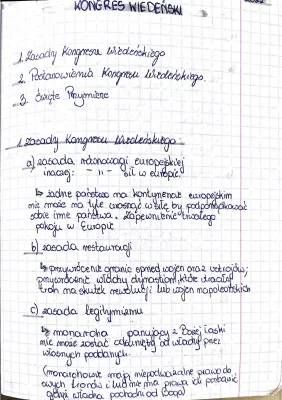 KONGRES WIEDEŃSKI
1. Zasady Kongresu Wiedeńskiego
2. Postanowienia Kongresu Wiedeńskiego.
3. Święte Przymierze
1. Zasady Kongresu Wiedeńskiego
a) zasada równowagi europejskiej
inaczej: -- 11 -- sił w europie.
↳ żadne państwo na kontynencie europejskim
nie może na tyle wrosnąć w siłę by podporządkować
sobie inne państwa. Zapewnienie trwałego
pokoju w Europie
b) zasada restauracji
↳ przywrócenie granic sprzed wojen oraz ustrojów,
przywrócenie władzy dynastiom, które utraciły
tron na skutek rewolucji lub wojen napoleońskich
c) zasada legitymizmu
↳ monarcha panujący z Bożej łaski
nie może zostać odsunięty od władzy przez
własnych poddanych.
(monarchowie mają niepodważalne prawo do
swych tronów i lud nie ma prawa ich pozbawić
gdyż władza pochodzi od Boga)